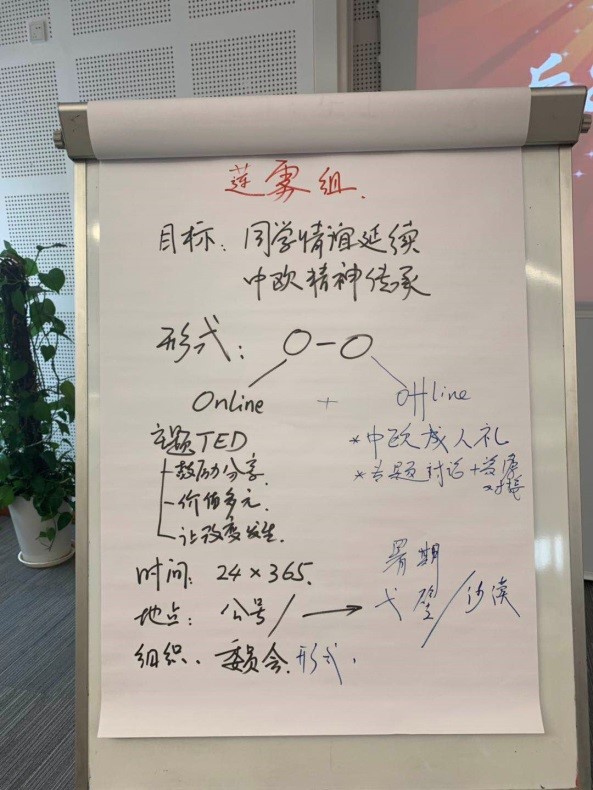 莲雾组.
目标: 同学情谊延续
中欧精神传承
形式: O-O
Online + offline
主题TED
鼓励分享.
价值多元.
让改变发生.
*中欧成人礼
*专题讨论+资源对接
时间: 24×365.
地点: 公号/ → 暑期
戈壁/沙漠
组织: 委员会.形式.